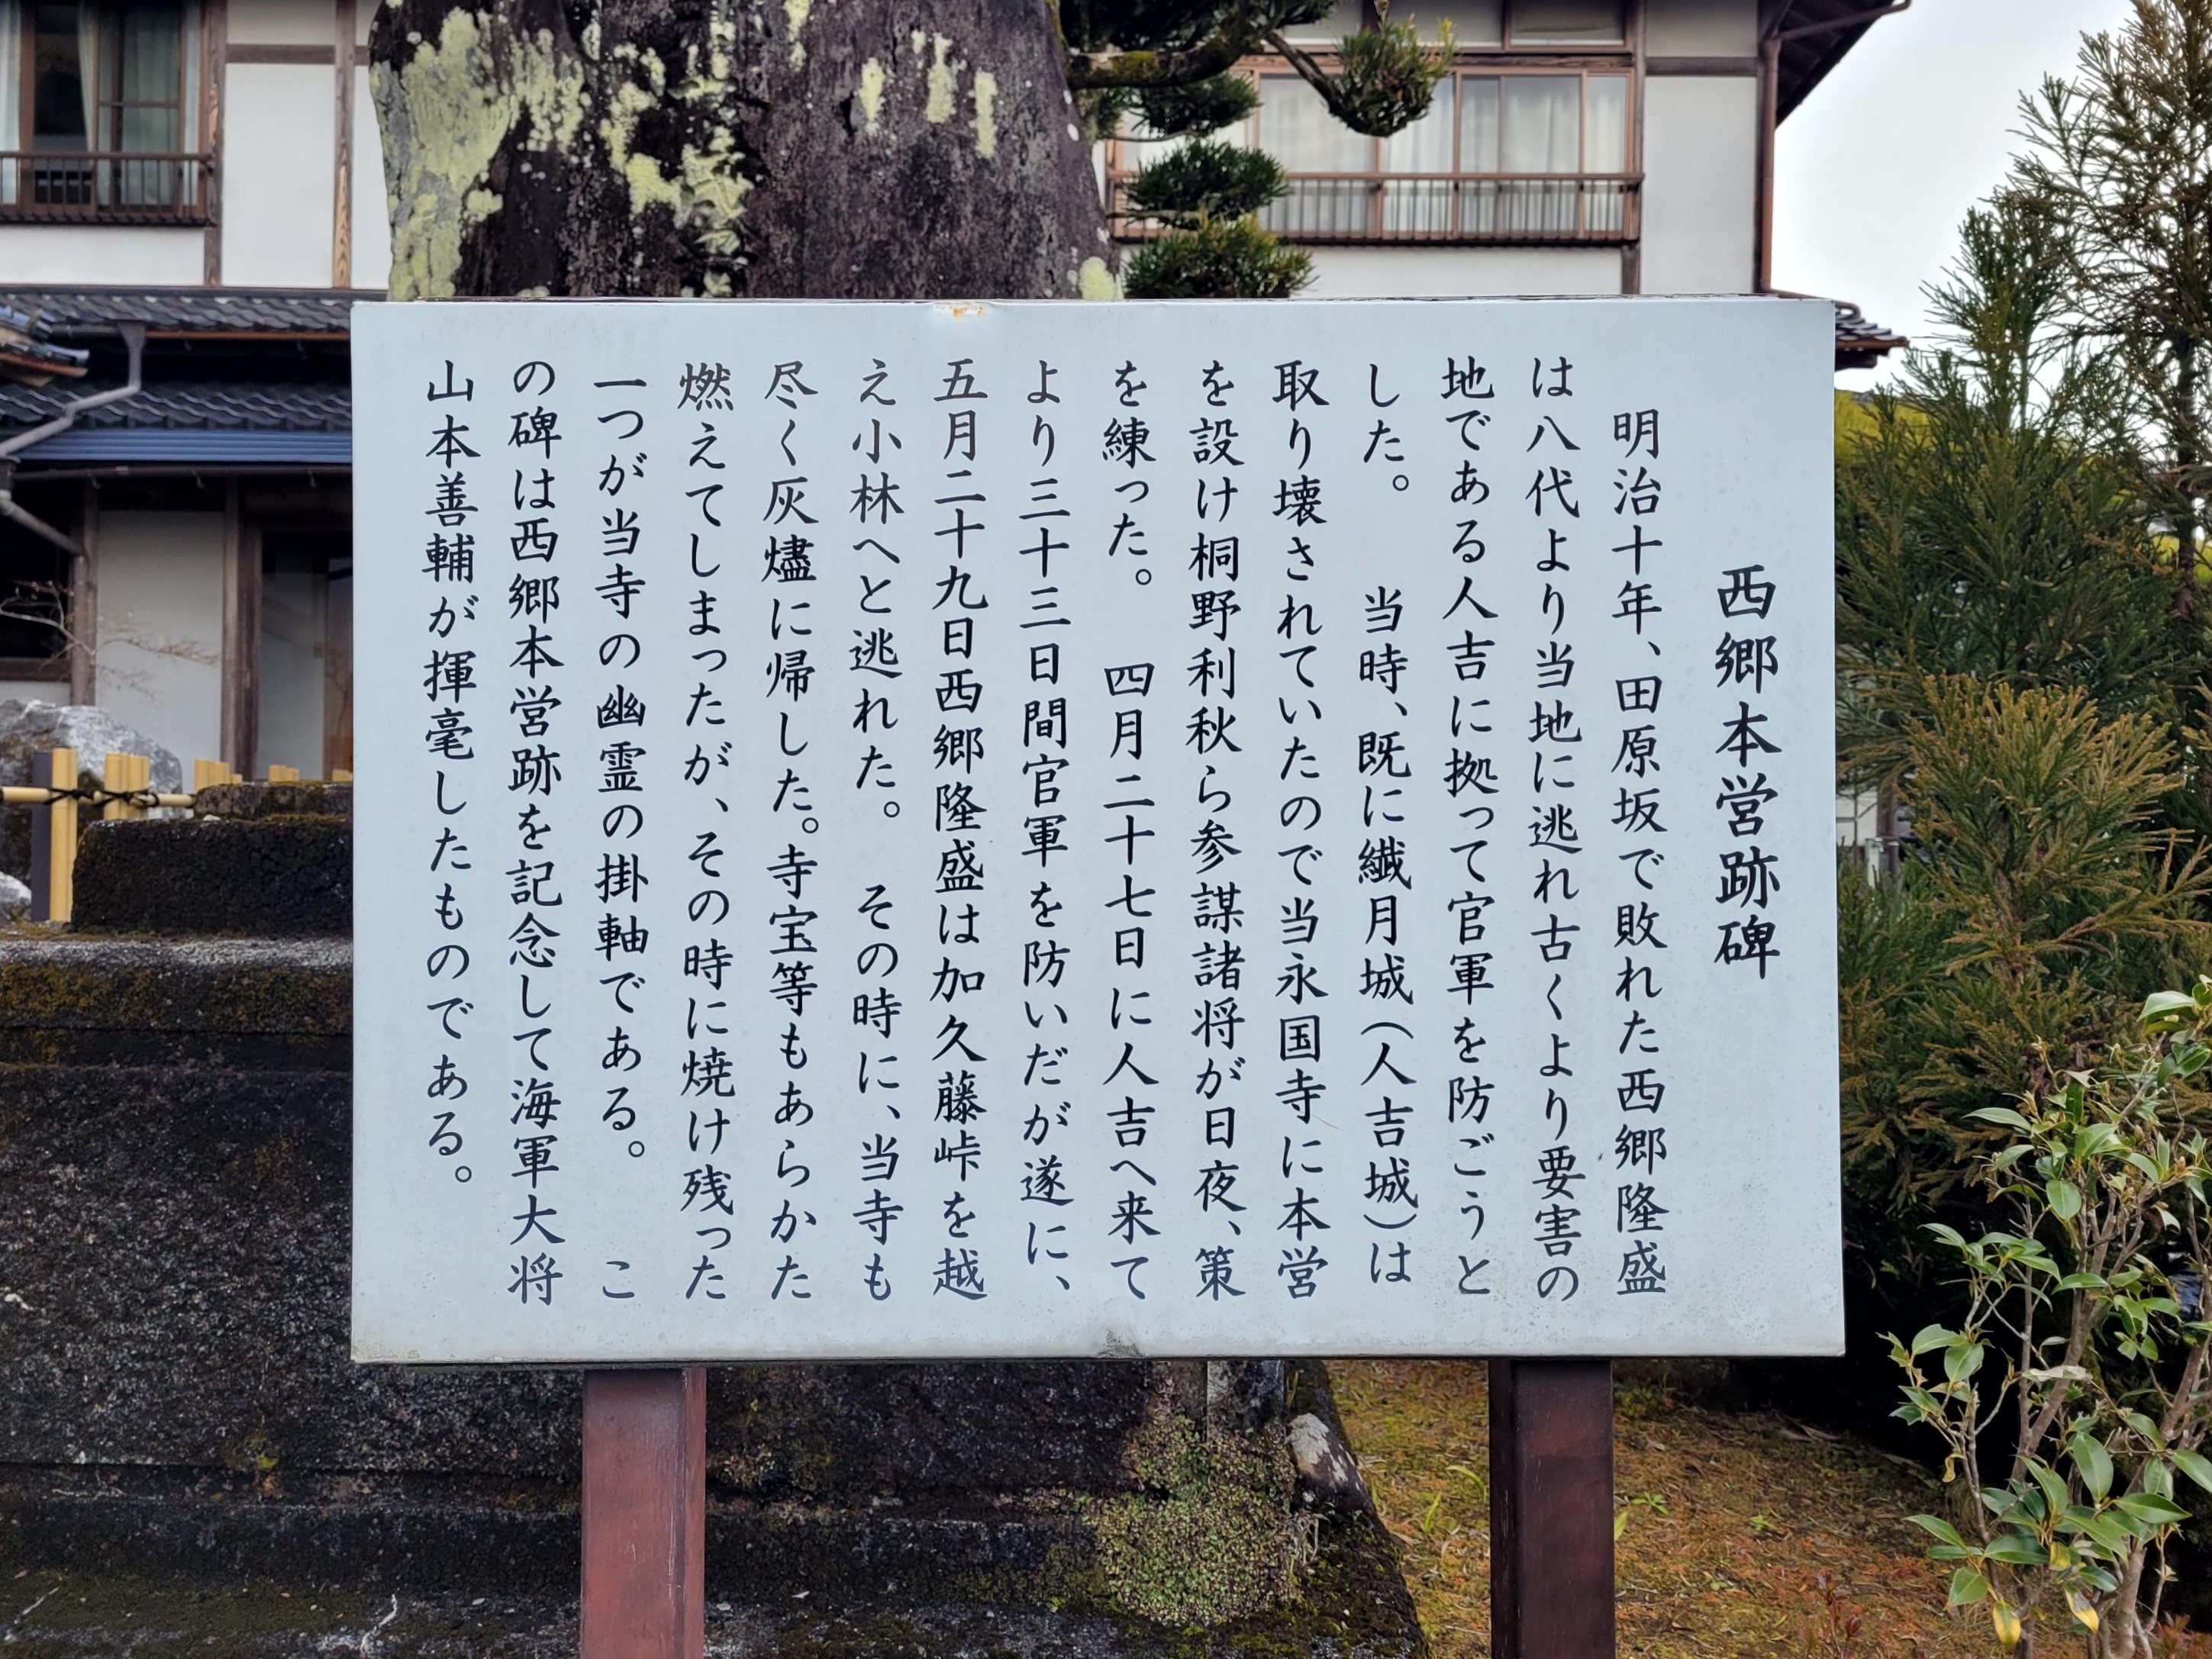 西郷本営跡碑
明治十年、田原坂で敗れた西郷隆盛
は八代より当地に逃れ古くより要害の
地である人吉に拠って官軍を防ごうと
した。　当時、既に繊月城（人吉城）は
取り壊されていたので当永国寺に本営
を設け桐野利秋ら参謀諸将が日夜、策
を練った。　四月二十七日に人吉へ来て
より三十三日間官軍を防いだが遂に、
五月二十九日西郷隆盛は加久藤峠を越
え小林へと逃れた。　その時に、当寺も
尽く灰燼に帰した。寺宝等もあらかた
燃えてしまったが、その時に焼け残った
一つが当寺の幽霊の掛軸である。　こ
の碑は西郷本営跡を記念して海軍大将
山本善輔が揮毫したものである。